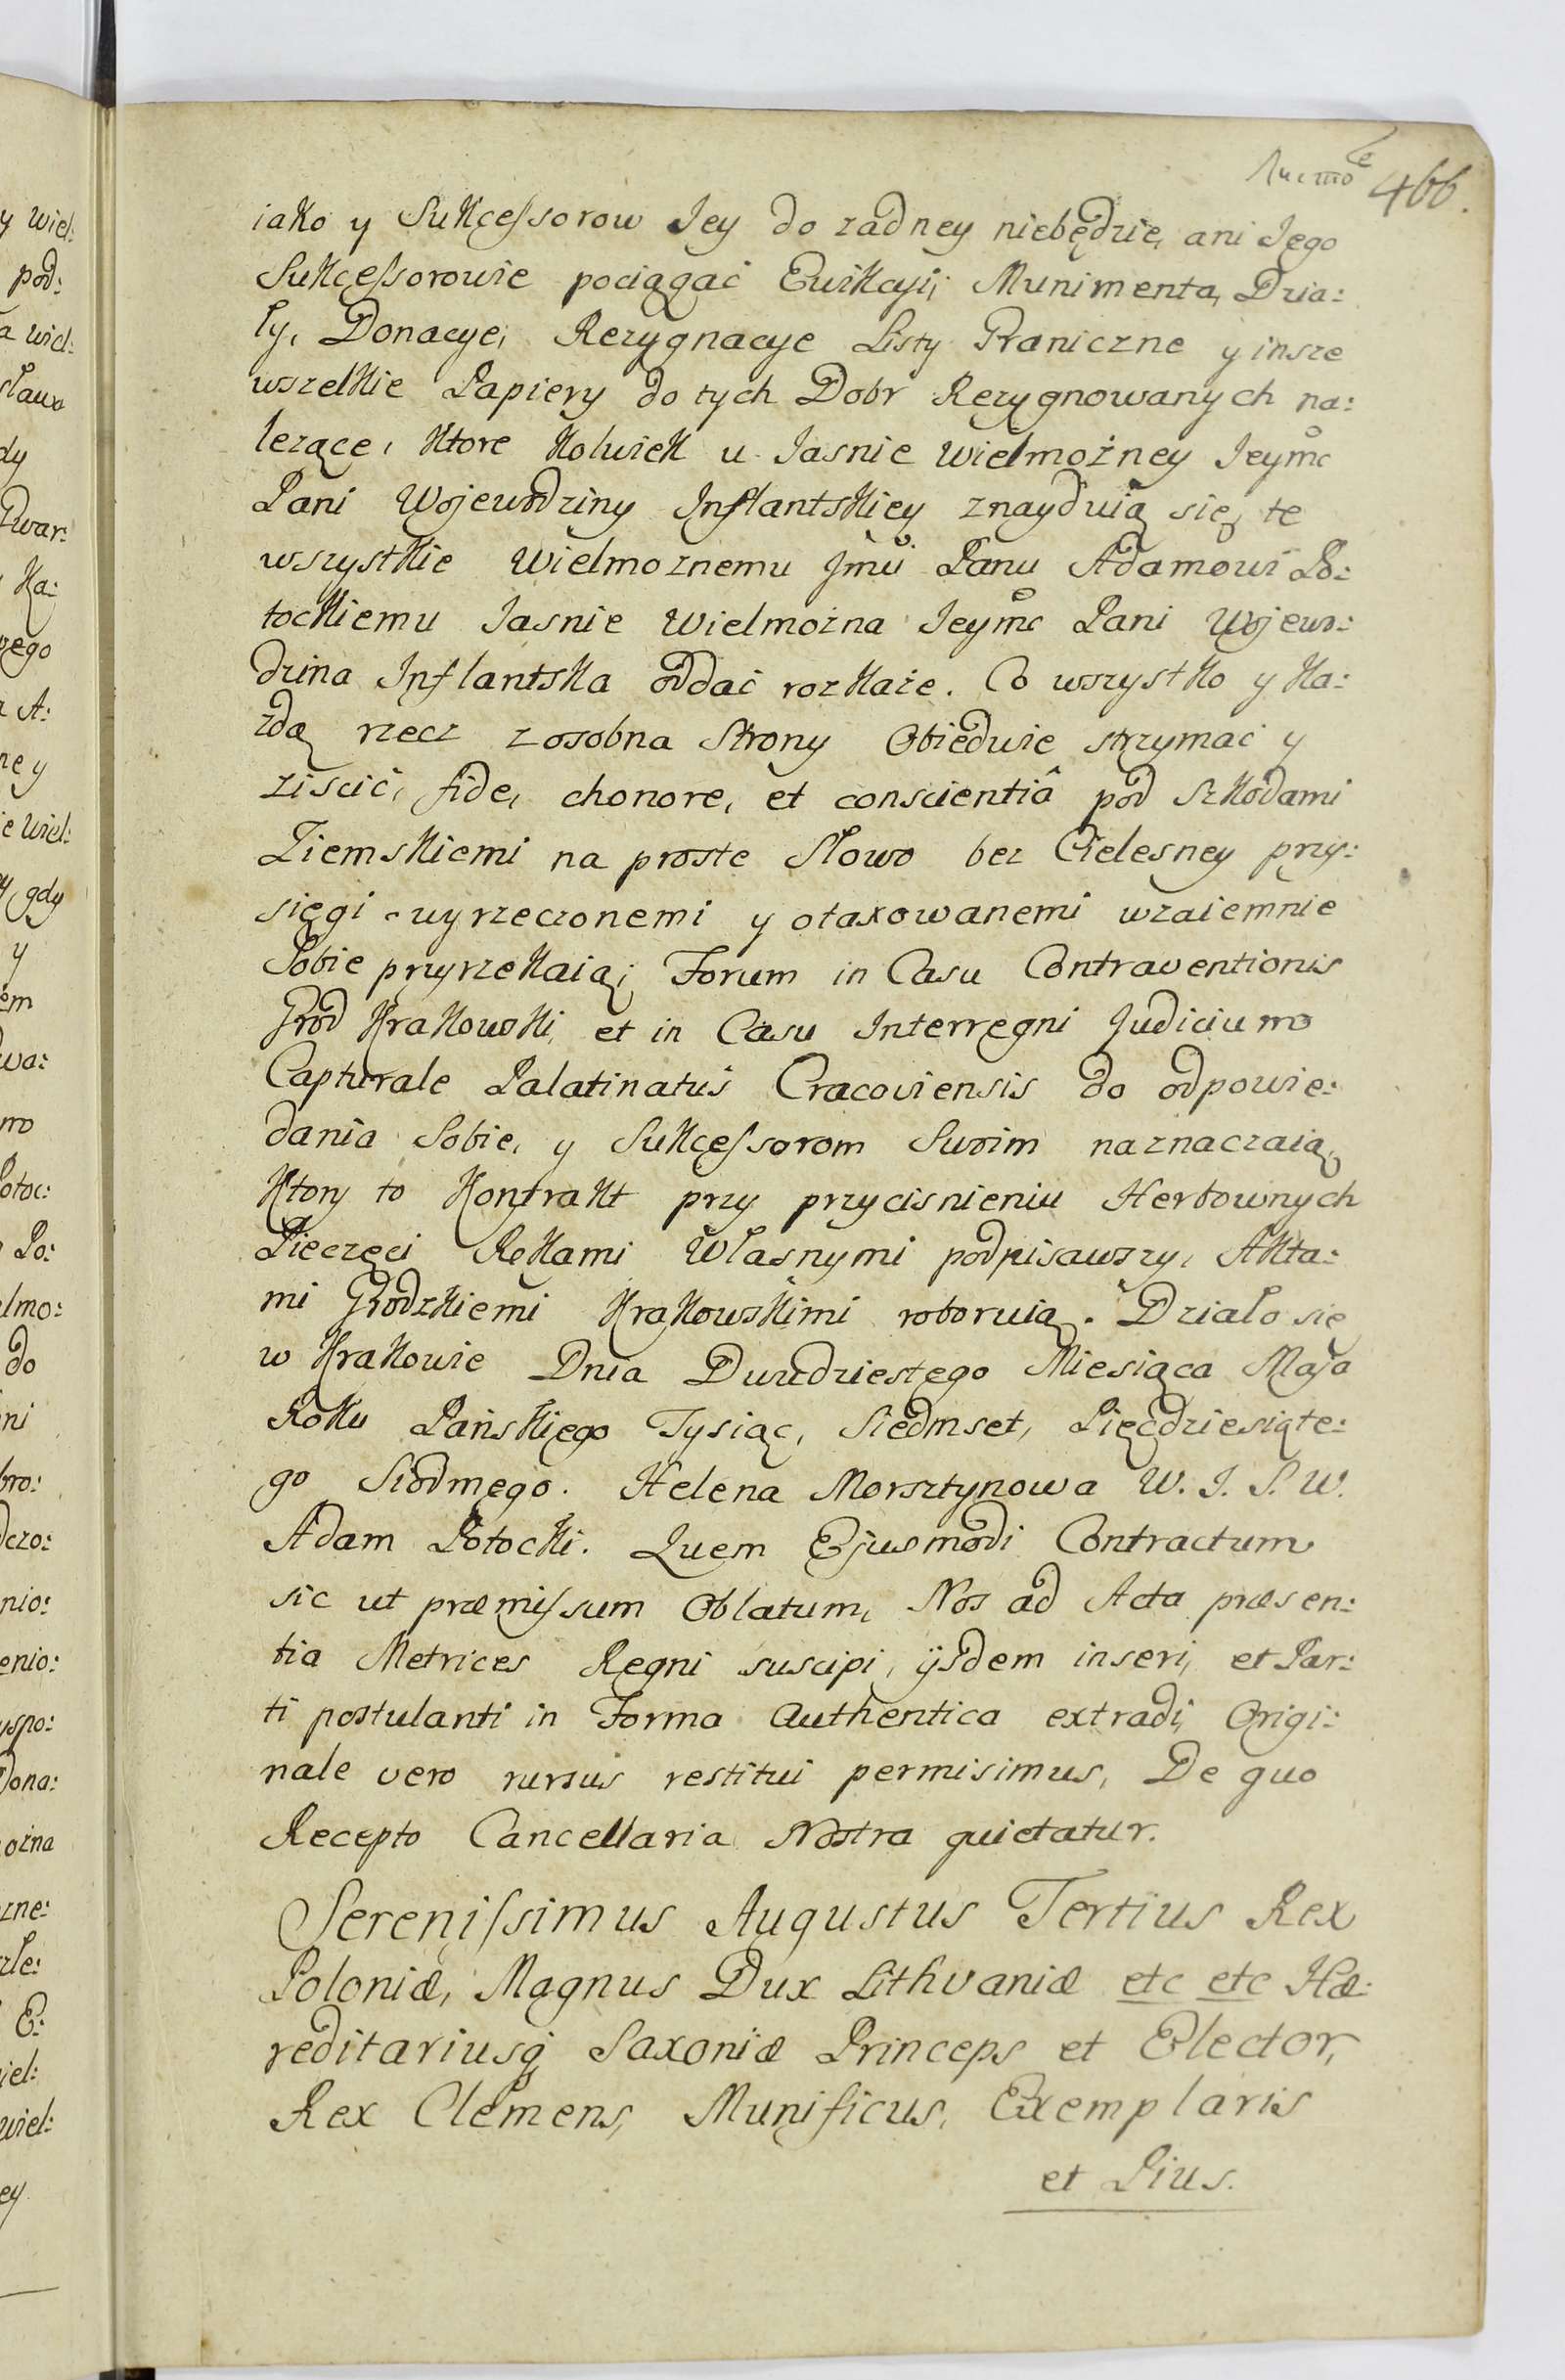 Листо е 466.
iako y Sukcessorow Jey do zadney niebędzie, ani Jego
Sukcessorowie pociągać Ewikcyi, Munimenta, Dzia:
ły, Donacye, Rezygnacye Listy Graniczne y insze
wszelkie Papiery do tych Dobr Rezygnowanych na:
lezące, ktore kolwiek u Jasnie Wielmożney Jeymc
Pani Wojewodziny Inflantskiey znayduią się, te
wszystkie Wielmoznemu Jmu Panu Adamowi Po:
tockiemu Jasnie Wielmożna Jeymc Pani Wojewo:
dzina Inflantska oddać rozkaże. Co wszystko y ka:
zdą rzecz zosobna Strony Obiedwie strzymać y
ziscić, fide, chonore, et conscientiâ pod Szkodami
Ziemskiemi na proste Słowo bez Cielesney przy:
sięgi wyrzeczonemi y otaxowanemi wzaiemnie
Sobie przyrzekaią; Forum in Casu Contraventionis
Grod Krakowski, et in Casu Interregni Judicium
Capturale Palatinatus Cracoviensis do odpowie:
dania Sobie, y Sukcessorom Swoim naznaczaią,
Ktory to Kontrakt przy przycisnieniu Herbownych
Pieczęci Rękami Własnymi podpisawszy, Akta:
mi Grodzkiemi Krakowskimi roboruią. Działo się
w Krakowie Dnia Dwudziestego Miesiąca Maja
Roku Pańskiego Tysiąc, Siedmset, Pięcdziesiąte:
go Siodmego. Helena Morsztynowa W. I. S. W.
Adam Potocki. Quem Ejusmodi Contractum
sic ut præmissum Oblatum, Nos ad Acta præsen:
tia Metrices Regni suscipi, ijsdem inseri, et Par:
ti postulanti in Forma Authentica extradi, Origi:
nale vero rursus restitui permisimus, De quo
Recepto Cancellaria Nostra quietatur.
Serenissimus Augustus Tertius Rex
Poloniæ, Magnus Dux Lithvaniæ etc etc Hæ:
reditariusq Saxoniæ Princeps et Elector,
Rex Clemens, Munificus, Exemplaris
et Pius.